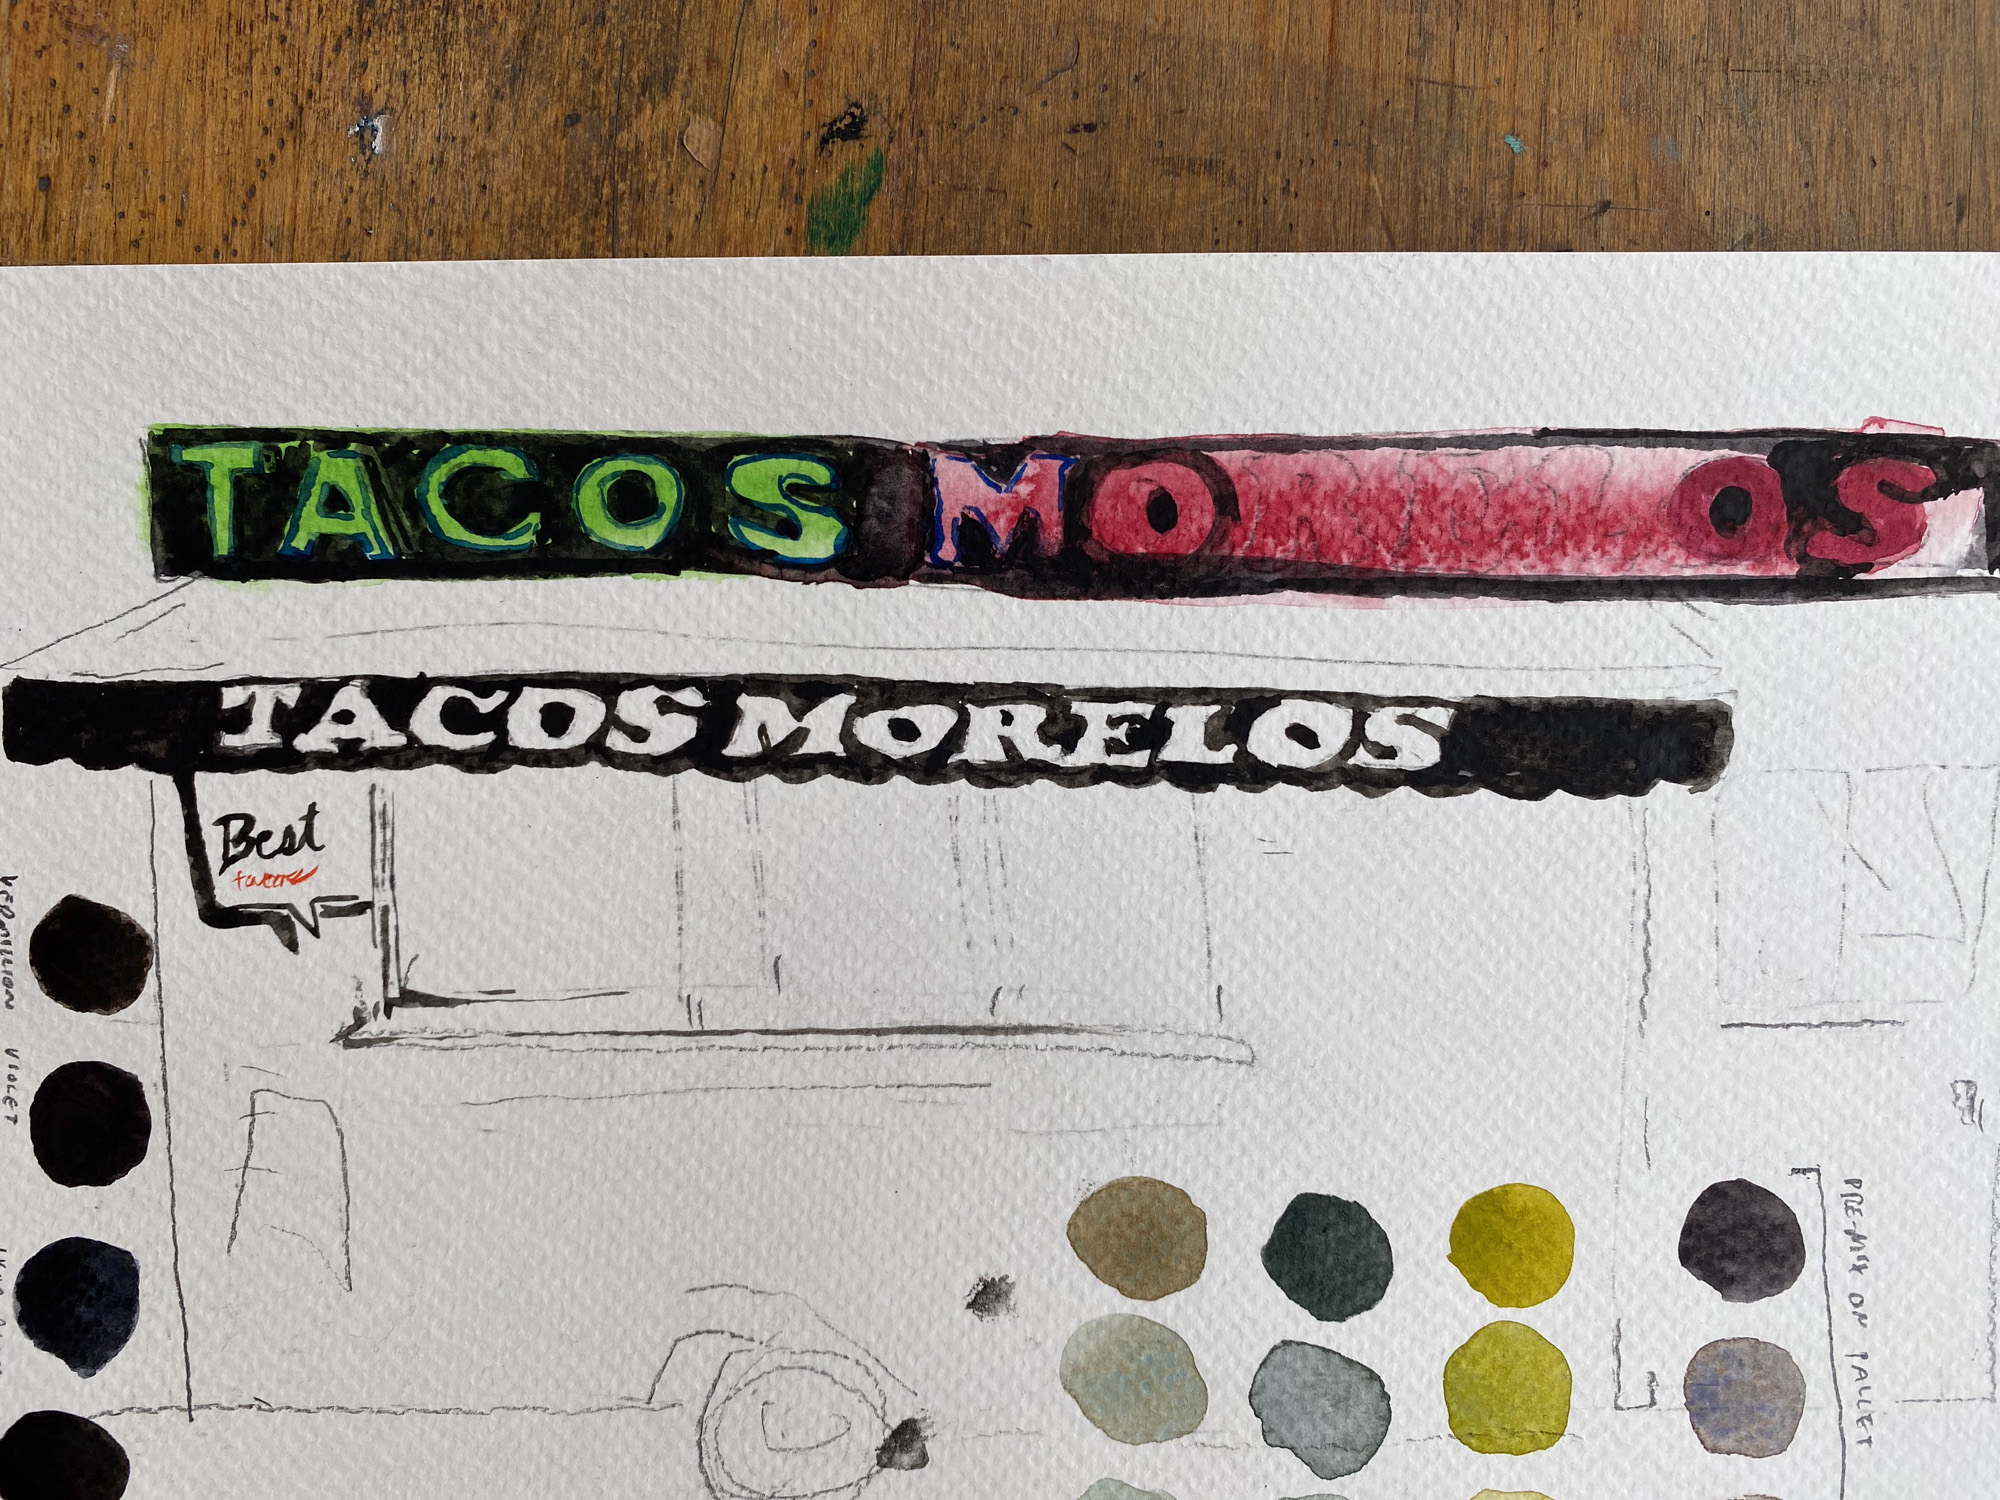 TACOS MORELOS
TACOS MORELOS
Best
VERMILLION
VIOLET
PRE-MIX ON PALLET